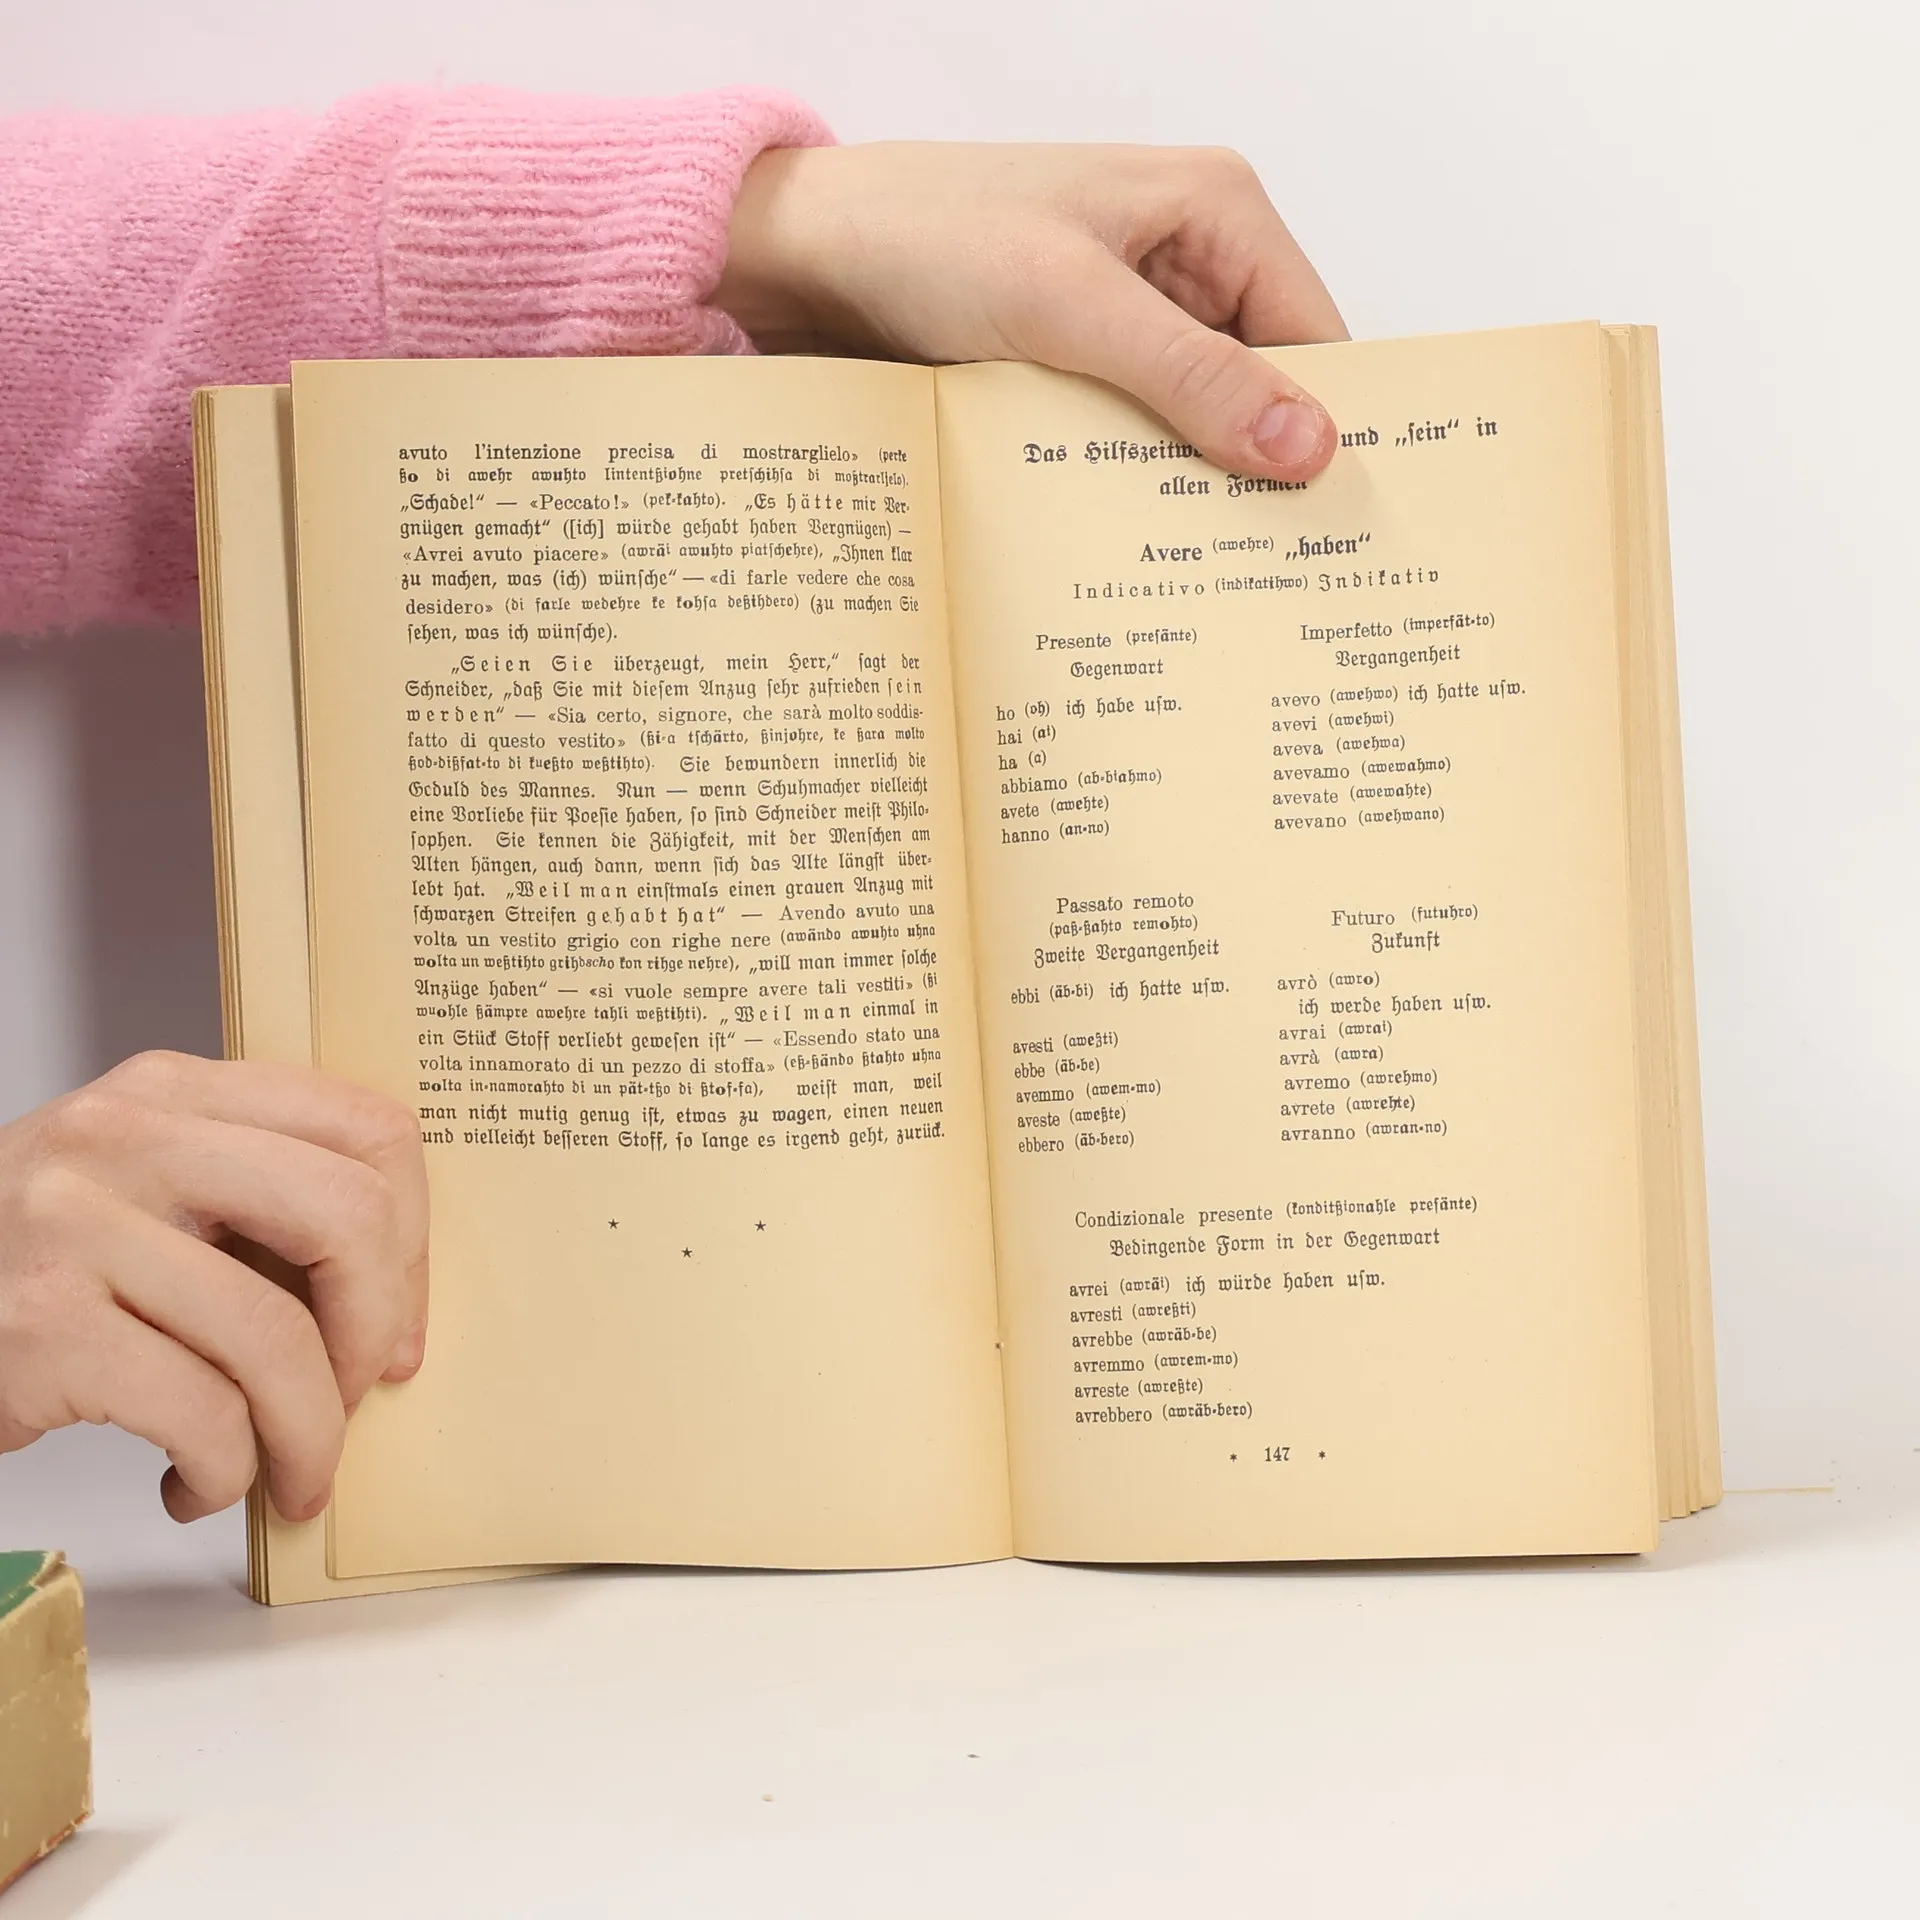 avuto l'intenzione precisa di mostrarglielo» (perke
ßo di awehr awuhto lintentßiohne pretschihsa di moßtrarljelo).
„Schade!“ — «Peccato!» (pek-kahto). „Es hätte mir Ver-
gnügen gemacht“ ([ich] würde gehabt haben Vergnügen) —
«Avrei avuto piacere» (awräi awuhto piatschehre), „Ihnen klar
zu machen, was (ich) wünsche“ — «di farle vedere che cosa
desidero» (di farle wedehre ke kohsa deßihdero) (zu machen Sie
sehen, was ich wünsche).
„Seien Sie überzeugt, mein Herr,“ sagt der
Schneider, „daß Sie mit diesem Anzug sehr zufrieden sein
werden“ — «Sia certo, signore, che sarà molto soddis-
fatto di questo vestito» (ßi-a tschärto, ßinjohre, ke ßara molto
ßod-dißfat-to di kueßto weßtihto). Sie bewundern innerlich die
Geduld des Mannes. Nun — wenn Schuhmacher vielleicht
eine Vorliebe für Poesie haben, so sind Schneider meist Philo-
sophen. Sie kennen die Zähigkeit, mit der Menschen am
Alten hängen, auch dann, wenn sich das Alte längst über-
lebt hat. „Weil man einstmals einen grauen Anzug mit
schwarzen Streifen gehabt hat“ — Avendo avuto una
volta un vestito grigio con righe nere (awändo awuhto uhna
wolta un weßtihto grihbscho kon rihge nehre), „will man immer solche
Anzüge haben“ — «si vuole sempre avere tali vestiti» (ßi
wuohle ßämpre awehre tahli weßtihti). „Weil man einmal in
ein Stück Stoff verliebt gewesen ist“ — «Essendo stato una
volta innamorato di un pezzo di stoffa» (eß-ßändo ßtahto uhna
wolta in-namorahto di un pät-tßo di ßtof-fa), weist man, weil
man nicht mutig genug ist, etwas zu wagen, einen neuen
und vielleicht besseren Stoff, so lange es irgend geht, zurück.
Das und „sein“ in
allen Formen
Avere (awehre) „haben“
Indicativo (indikatihwo) Indikativ
Presente (presänte)
Gegenwart
ho (oh) ich habe usw.
hai (ai)
ha (a)
abbiamo (ab-biahmo)
avete (awehte)
hanno (an-no)
Imperfetto (imperfät-to)
Vergangenheit
avevo (awehwo) ich hatte usw.
avevi (awehwi)
aveva (awehwa)
avevamo (awewahmo)
avevate (awewahte)
avevano (awehwano)
Passato remoto
(paß-ßahto remohto)
Zweite Vergangenheit
ebbi (äb-bi) ich hatte usw.
avesti (aweßti)
ebbe (äb-be)
avemmo (awem-mo)
aveste (aweßte)
ebbero (äb-bero)
Futuro (futuhro)
Zukunft
avrò (awro)
ich werde haben usw.
avrai (awrai)
avrà (awra)
avremo (awrehmo)
avrete (awrehte)
avranno (awran-no)
Condizionale presente (konditßionahle presänte)
Bedingende Form in der Gegenwart
avrei (awräi) ich würde haben usw.
avresti (awreßti)
avrebbe (awräb-be)
avremmo (awrem-mo)
avreste (awreßte)
avrebbero (awräb-bero)
* 147 *